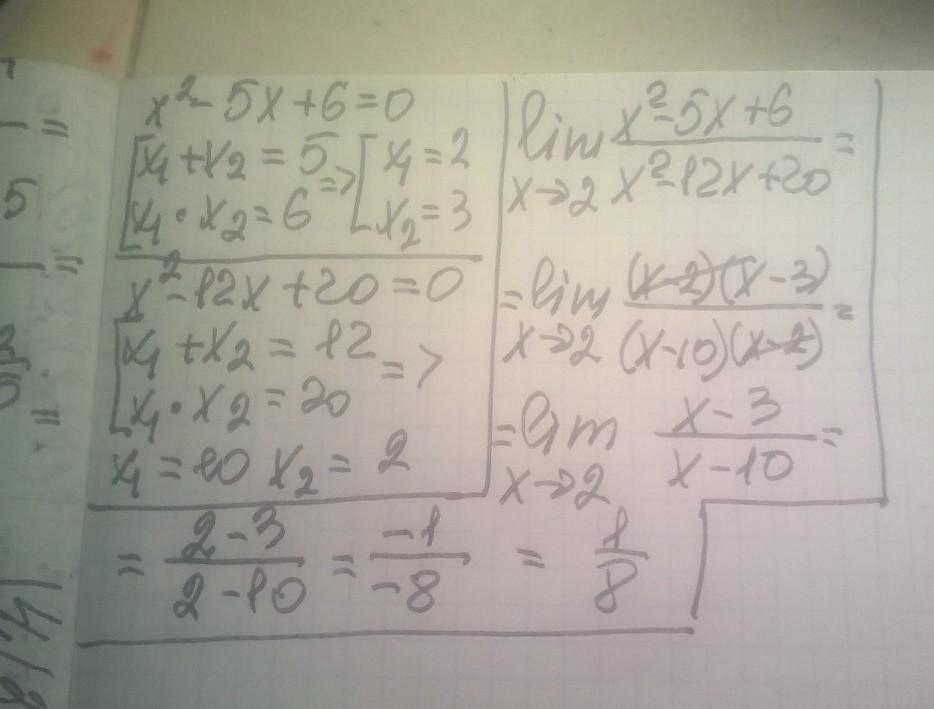 x² - 5x + 6 = 0
[x₁ + x₂ = 5
[x₁ · x₂ = 6
=> [x₁ = 2
[x₂ = 3
x² - 12x + 20 = 0
[x₁ + x₂ = 12
[x₁ · x₂ = 20
=>
x₁ = 10 x₂ = 2
lim x→2 (x² - 5x + 6)/(x² - 12x + 20) =
= lim x→2 ((x-2)(x-3))/((x-10)(x-2)) =
= lim x→2 (x-3)/(x-10) =
= (2-3)/(2-10) = (-1)/(-8) = 1/8